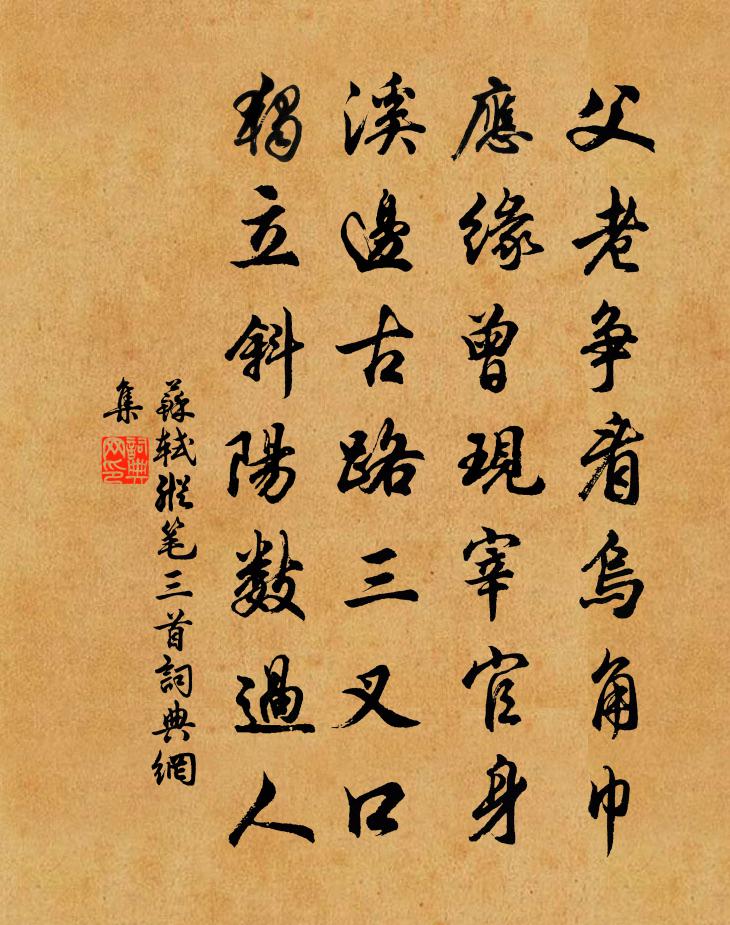 父老争看烏角巾
應緣曾現宰官身
溪邊古路三叉口
獨立斜陽數過人
蘇軾縱笔三首詞典網
集
詞典網印